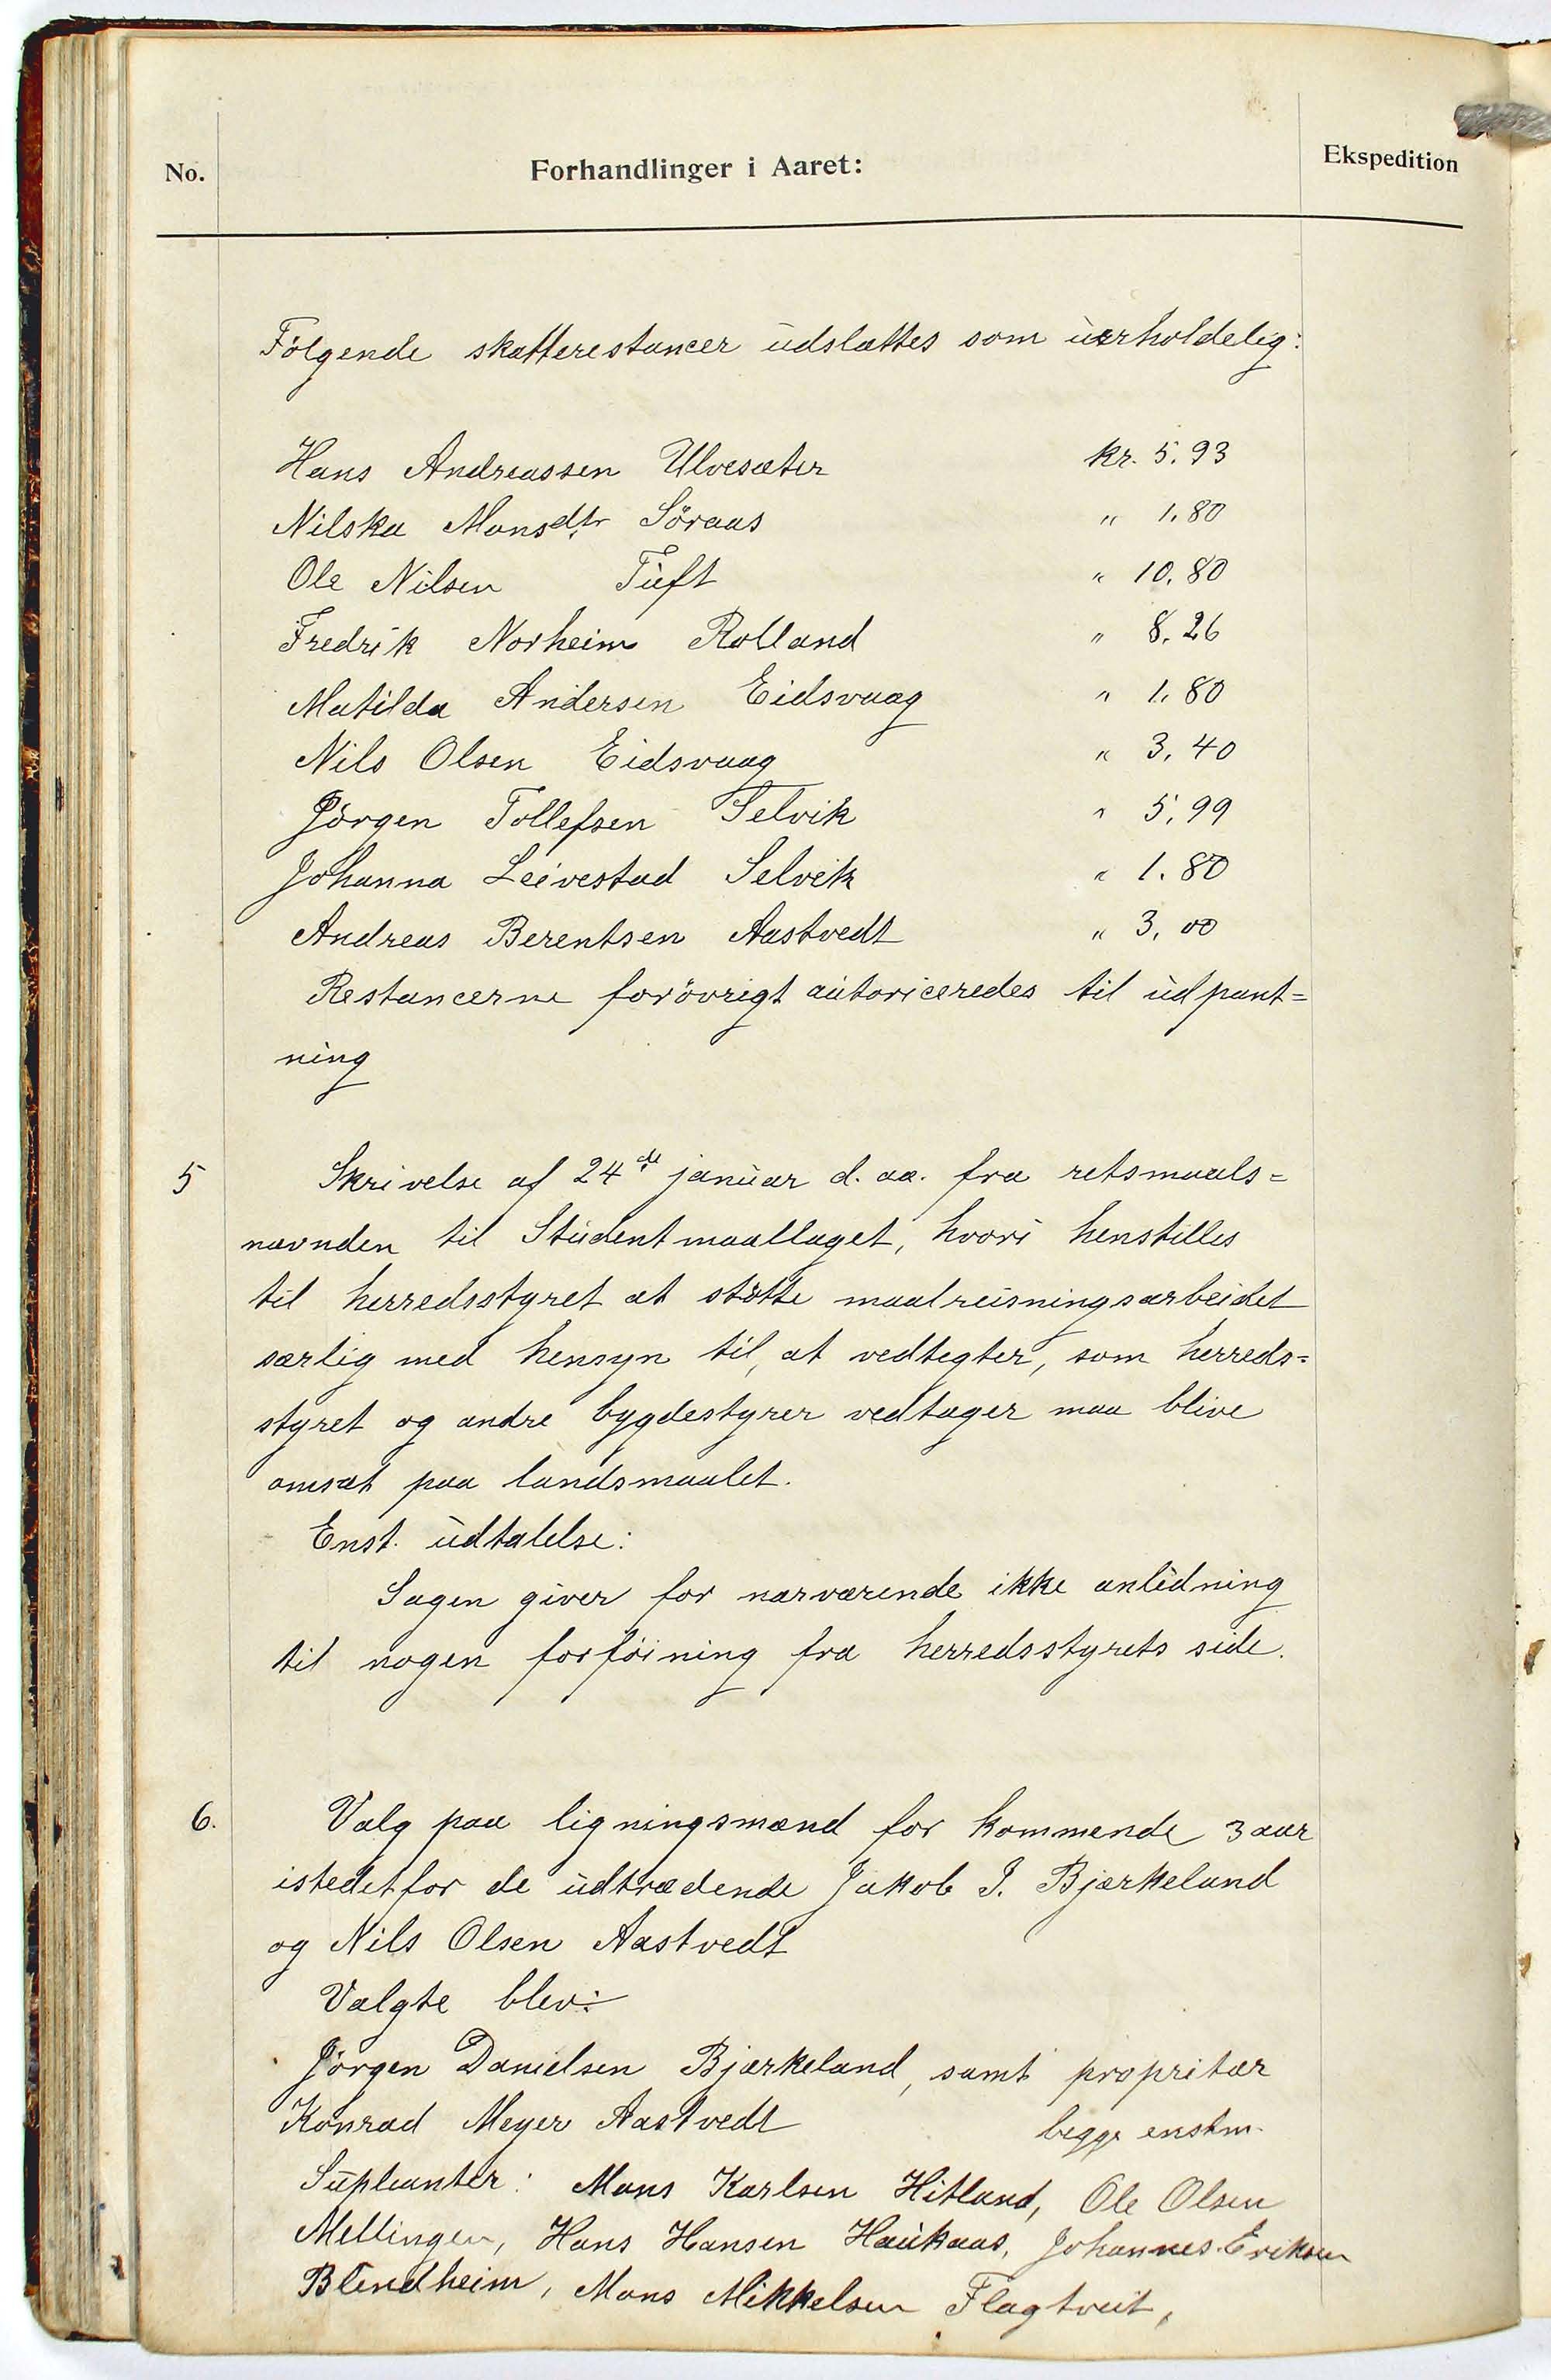 No.
Forhandlinger i Aaret:
Ekspedition
Følgende skatterestancer udslættes som uerholdelig:
Hans Andreassen Ulvesæter kr. 5.93
Nilska Monsdtr. Söraas " 1.80
Ole Nilsen Tuft " 10.80
Fredrik Norheim Rolland " 8.26
Matilda Andersen Eidsvaag " 1.80
Nils Olsen Eidsvaag " 3.40
Jörgen Tollefsen Selvik " 5.99
Johanna Leivestad Selvik " 1.80
Andreas Berentsen Aastvedt " 3.00
Restancerne forövrigt autoriceredes til udpant=
ning
5 Skrivelse af 24de januar d. aa. fra retsmaals=
nævnden til Studentmaallaget, hvori henstilles
til herredsstyret at støtte maalreisningsarbeidet
særlig med hensyn til, at vedtegter, som herreds=
styret og andre bygdestyrer vedtager maa blive
omsat paa landsmaalet.
Enst. udtalelse:
Sagen giver for nærværende ikke anlidning
til nogen forföining fra herredsstyrets side.
6. Valg paa ligningsmænd for kommende 3 aar
istedetfor de udtrædende Jakob J. Bjærkeland
og Nils Olsen Aastvedt
Valgte blev:
Jörgen Danielsen Bjærkeland, samt propritær
Konrad Meyer Aastvedt begge enstm.
Supleanter: Mons Karlsen Hitland, Ole Olsen
Mellingen, Hans Hansen Haukaas, Johannes Eriksen
Blindheim, Mons Mikkelsen Flagtveit,